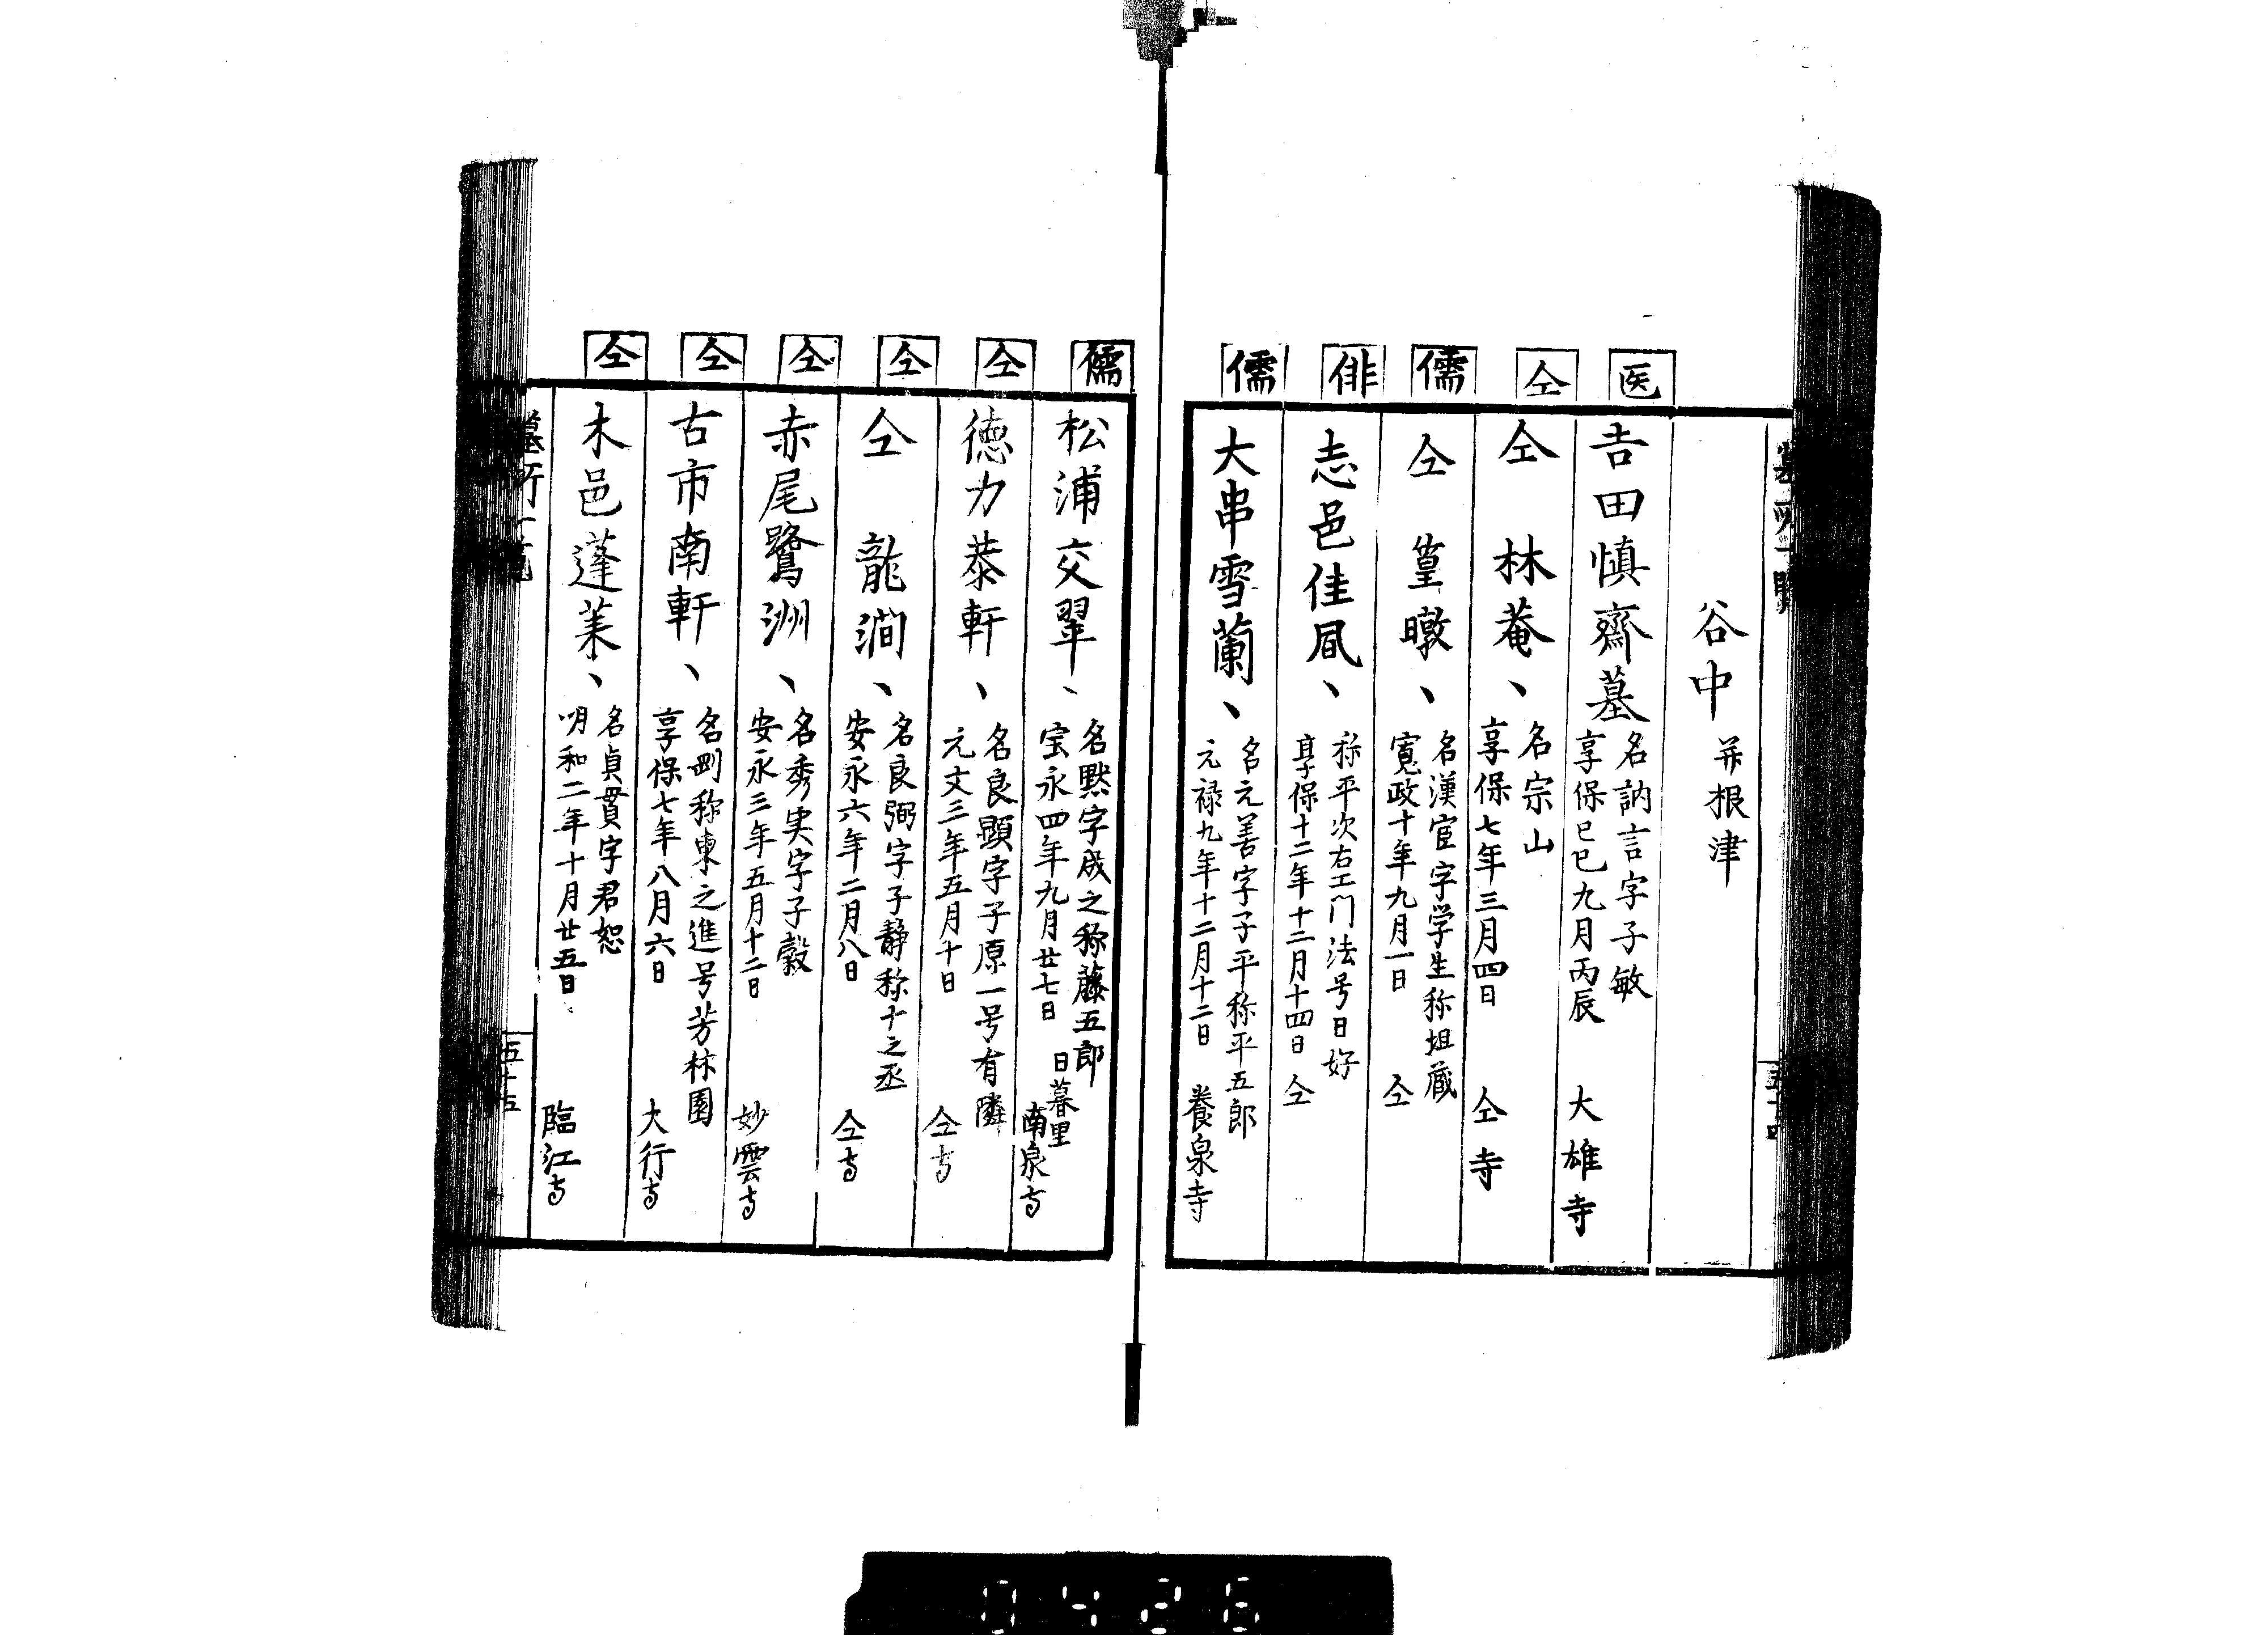 谷中 并根津
医
吉田慎齋墓
名訥言字子敏
享保己巳九月丙辰
大雄寺
仝
仝 林菴、
名宗山
享保七年三月四日
仝寺
儒
仝 篁暾、
名漢宦字学生称坦蔵
寛政十年九月一日
仝
俳
志邑佳凨、
称平次右エ門法号日好
享保十二年十二月十四日
仝
儒
大串雪蘭、
名元善字子平称平五郎
元禄九年十二月十二日
養泉寺
儒
松浦交翠、
名黙字成之称藤五郎
宝永四年九月廿七日
日暮里
南泉寺
仝
徳力恭軒、
名良顕字子原一号有隣
元文三年五月十日
仝寺
仝
仝 龍澗、
名良弼字子静称十之丞
安永六年二月八日
仝寺
仝
赤尾鷺洲、
名秀実字子穀
安永三年五月十二日
妙雲寺
仝
古市南軒、
名剛称東之進号芳林園
享保七年八月六日
大行寺
仝
木邑蓬莱、
名貞貫字君恕
明和二年十月廿五日
臨江寺
五十五